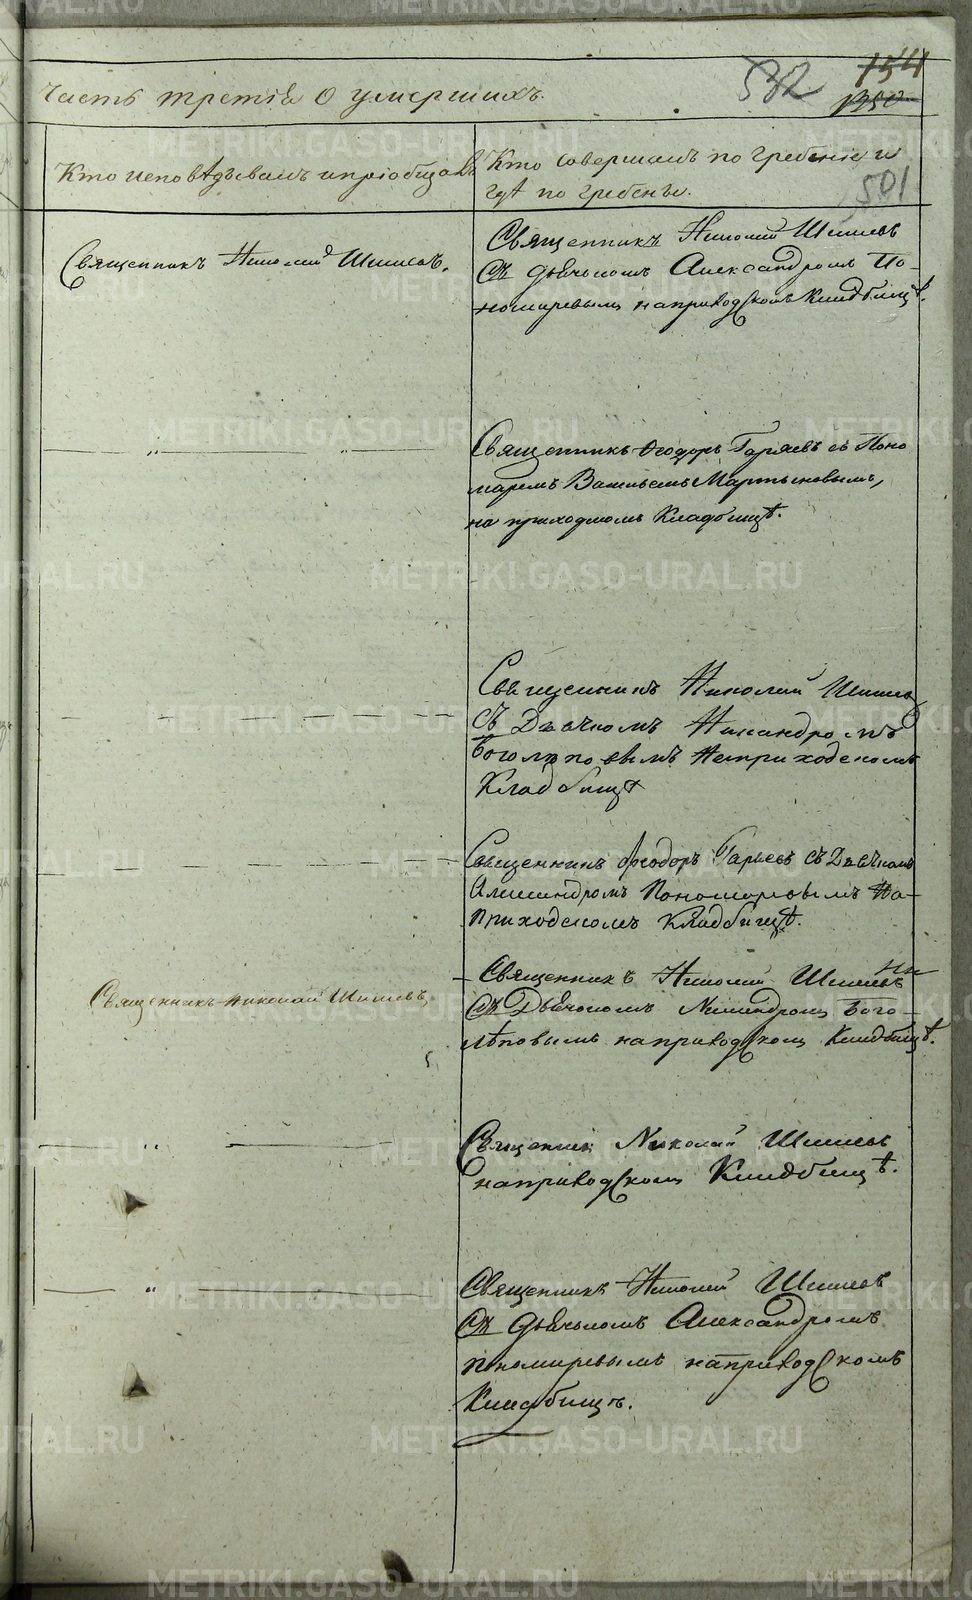 Часть третія О умершихъ.
582
154
1350
501
Кто исповѣдывалъ и пріобщалъ
Кто совершалъ по гребеніе и
гдѣ по гребены.
Священникъ Николай Шишевъ.
Священникъ Николай Шишевъ
Съ дьячкомъ Александромъ По-
номаревымъ на приходскомъ Кладбищѣ.
Священникъ Ѳеодоръ Гаряевъ съ Поно
маремъ Васильемъ Мартыновымъ,
на приходскомъ Кладбищѣ.
Священникъ Николай Шишевъ
Съ Дьячкомъ Никандромъ
Боголюповымъ На приходскомъ
Кладбищѣ
Священникъ Ѳеодоръ Гаряевъ Съ Дьячкомъ
Александромъ Пономаревымъ На-
Приходскомъ Кладбищѣ.
Священникъ Николай Шишевъ,
Священникъ Николай Шишевъ
Съ Дьячкомъ Бого-
лѣповымъ на приходском Кладбищѣ.
Священник Николай Шишевъ
на приходском Кладбищѣ.
Священникъ Николай Шишевъ
Съ дьячкомъ Александромъ
Пономаревымъ на приходскомъ
Кладбищѣ.
METRIKI.GASO-URAL.RU